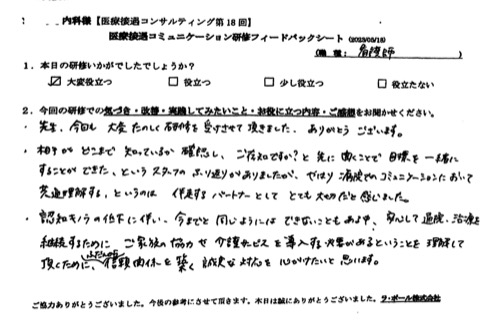 内科様【医療接遇コンサルティング第18回】
医療接遇コミュニケーション研修フィードバックシート (2023/05/18)
(職種: 看護師 )
1．本日の研修いかがでしたでしょうか？
☑ 大変役立つ □ 役立つ □ 少し役立つ □ 役立たない
2．今回の研修での気づき・改善・実践してみたいこと・お役に立つ内容・ご感想をお聞かせください。
・先生、今回も 大変 たのしく 研修を 受けさせて 頂きました。ありがとう ございます。
・相手が どこまで 知っているか 確認し、ご存知ですか？と 先に 聞くことで 目線を 一緒に
することができた、という スタッフの ふり返りがありましたが、やはり 病院でのコミュニケーションにおいて
共通理解する、というのは 伴走する パートナーとして とても 大切だと 感じました。
・認知モノラの低下に伴い、今までと 同じようには できないことも ある中、安心して 通院、治療を
継続するために ご家族の 協力や 介護サービスを 導入する 必要があるということを 理解して
頂くために、信頼関係を 築く 誠実な 対応を 心がけたいと 思います。
ご協力ありがとうございました。今後の参考にさせて頂きます。本日は誠にありがとうございました。ラ・ポール株式会社